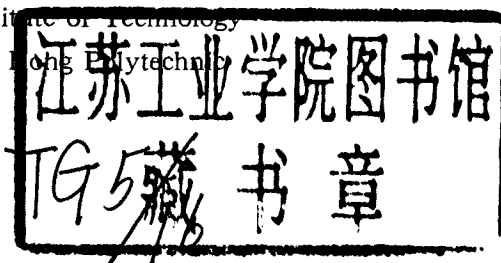 of Technology
Hong Polytechnic
江苏工业学院图书馆
TG5
藏书章